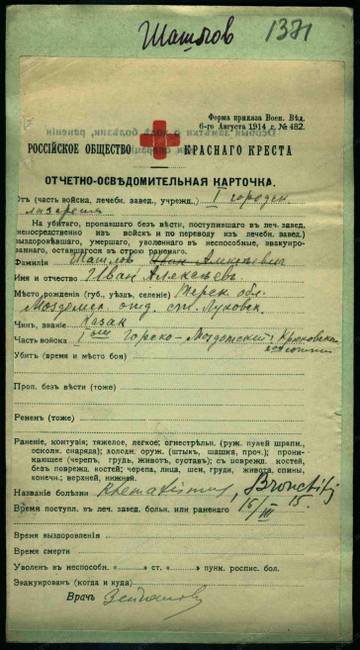 Шашлов 1371
Форма приказа Воен. Вѣд.
6-го Августа 1914 г. № 482.
РОССІЙСКОЕ ОБЩЕСТВО КРАСНАГО КРЕСТА
ОТЧЕТНО-ОСВѢДОМИТЕЛЬНАЯ КАРТОЧКА.
Отъ (часть войска, лечебн. завед., учрежд.) 1 городск.
лазарета
На убитаго, пропавшаго безъ вѣсти, поступившаго въ леч. завед.
(непосредственно изъ войскъ и по переводу изъ лечебн. завед.)
выздоровѣвшаго, умершаго, уволеннаго въ неспособные, эвакуиро-
ваннаго, оставшагося въ строю раненаго.
Фамилія Шашлов
Имя и отчество Иван Алексѣев.
Мѣсто рожденія (губ., уѣздъ, селеніе) Терск. обл.
Моздокск. отд. ст. Луковск.
Чинъ, званіе Казак
Часть войска Горско-Моздокскій
Убитъ (время и мѣсто боя)
Проп. безъ вѣсти (тоже)
Раненъ (тоже)
Раненіе, контузія: тяжелое, легкое; огнестрѣльн. (руж. пулей шрапн.,
осколк. снаряда); холодн. оруж. (штыкъ, шашка, проч.); прони-
кающее (черепъ, грудь, животъ, суставъ); съ поврежд. костей,
безъ поврежд. костей; черепа, лица, шеи, груди, живота, спины,
конечн.: верхней, нижней.
Названіе болѣзни Rhematismus, Bronchitis
Время поступл. въ леч. завед. больн. или раненаго 16/III 15.
Время выздоровленія
Время смерти
Уволенъ въ неспособн. „ » ст. „ » пунк. роспис. бол.
Эвакуированъ (когда и куда)
Врачъ